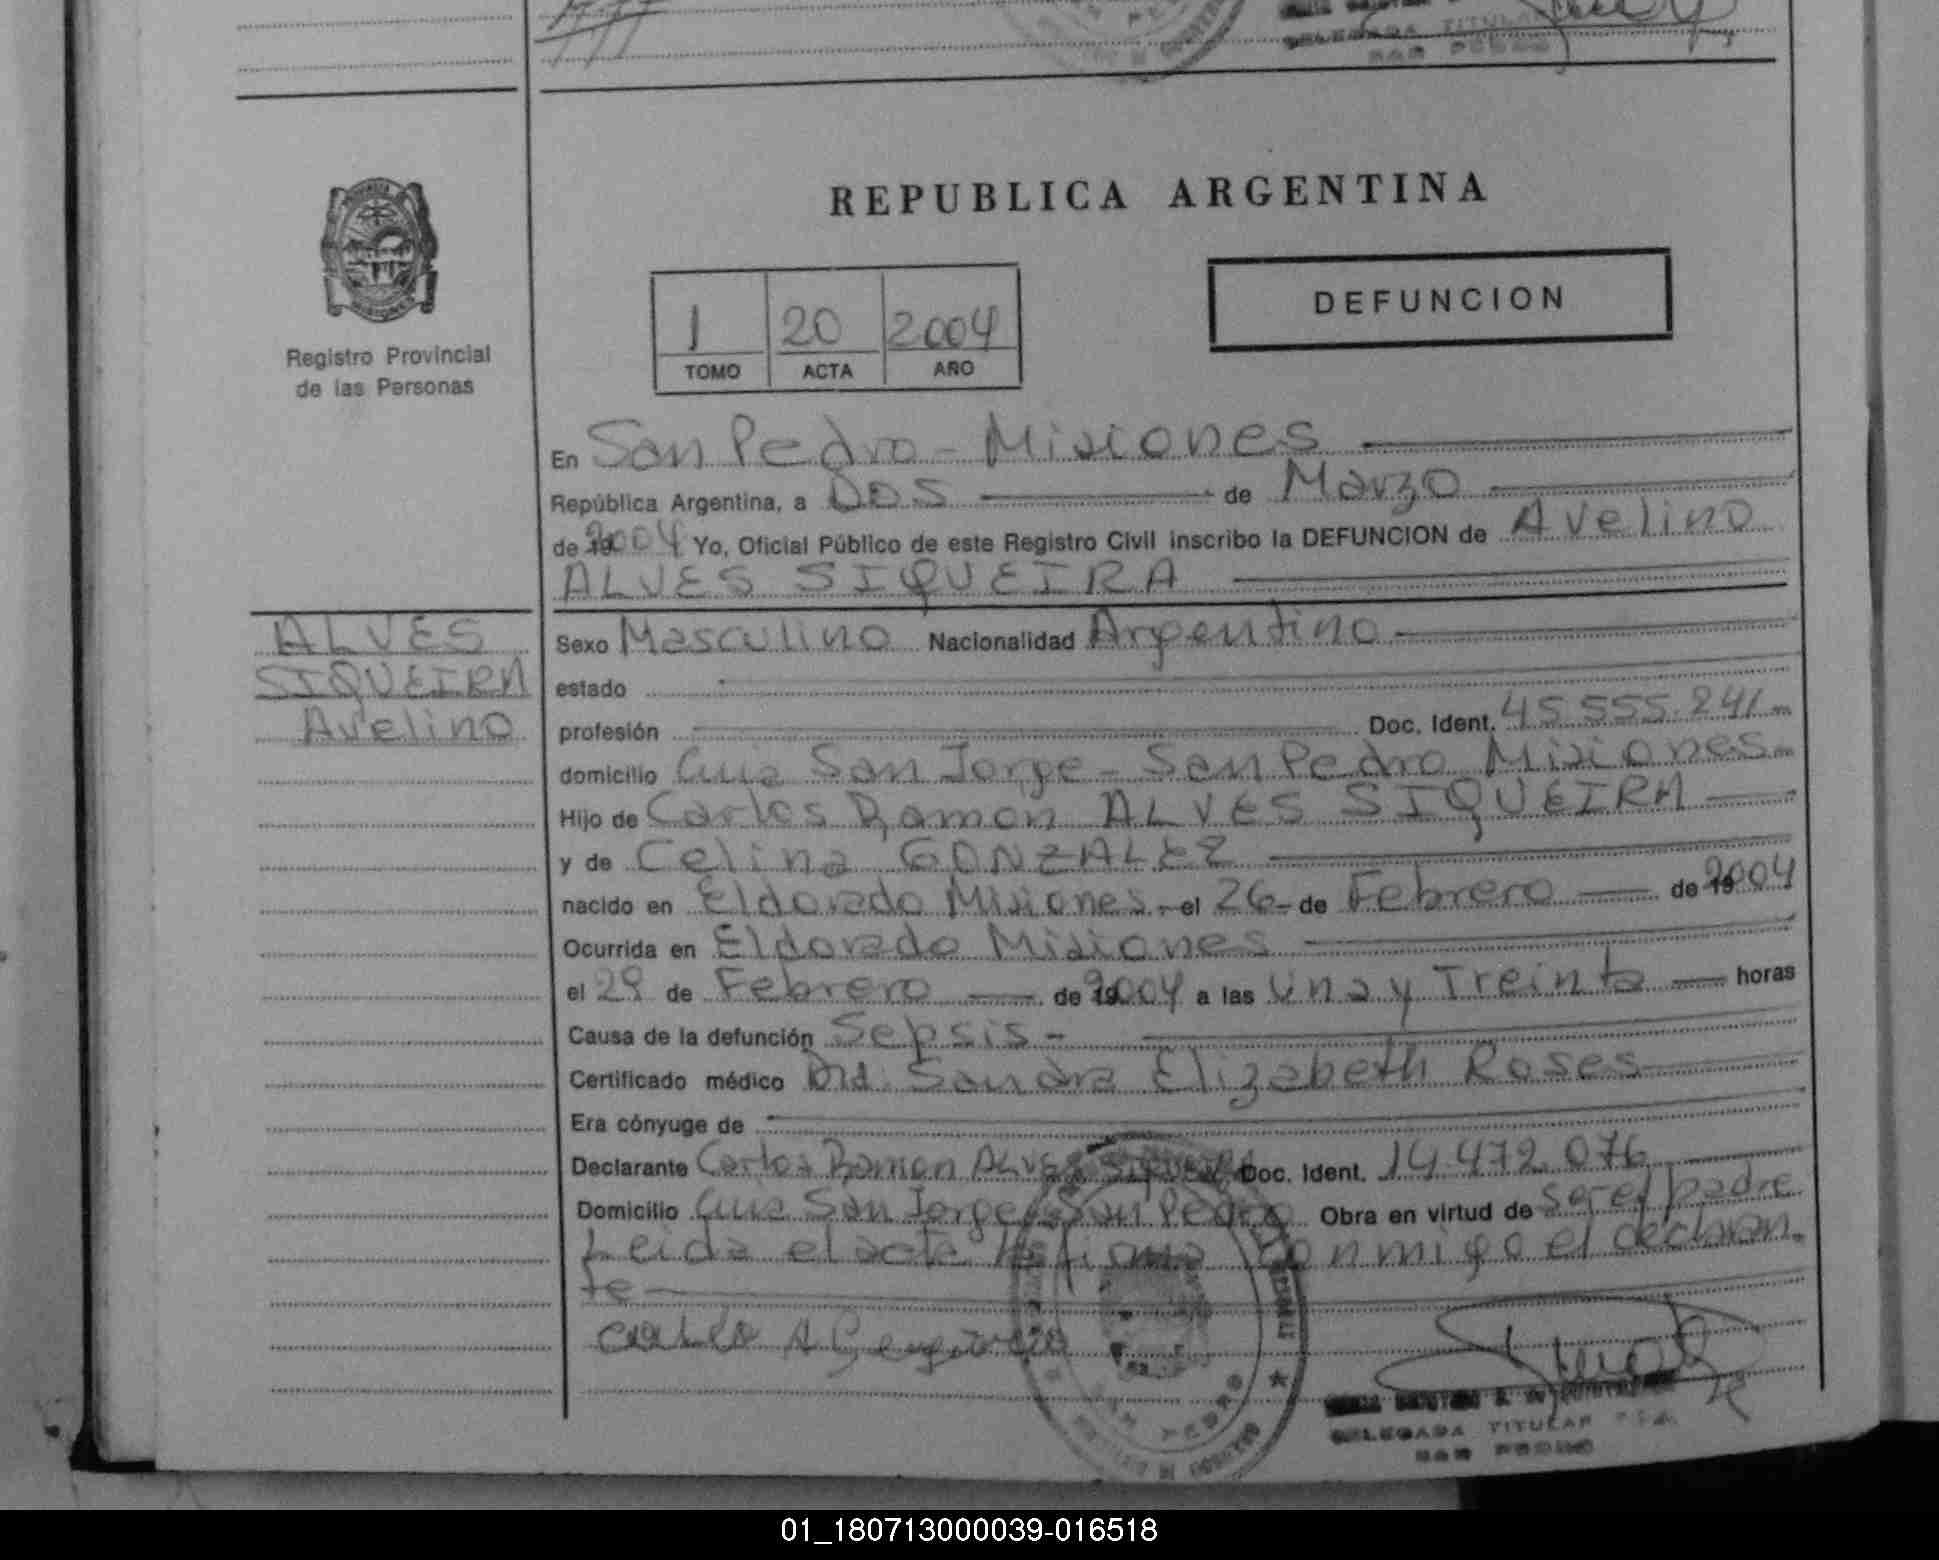 DELEGADA TITULAR
SAN PEDRO
REPUBLICA ARGENTINA
DEFUNCION
1 20 2004
TOMO ACTA AÑO
Registro Provincial
de las Personas
En San Pedro - Misiones
República Argentina, a Dos de Marzo
de 2004 Yo, Oficial Público de este Registro Civil inscribo la DEFUNCION de Avelino
ALVES SIQUEIRA
ALVES
SIQUEIRA
Avelino
Sexo Masculino Nacionalidad Argentino
estado
profesión Doc. Ident. 45.555.241
domicilio Cuia San Jorge - San Pedro Misiones
Hijo de Carlos Ramon ALVES SIQUEIRA
y de Celina GONZALEZ
nacido en Eldorado Misiones el 26 de Febrero de 2004
Ocurrida en Eldorado Misiones
el 29 de Febrero de 2004 a las Una y Treinta horas
Causa de la defunción Sepsis -
Certificado médico Dra. Sandra Elizabeth Roses
Era cónyuge de
Declarante Carlos Ramon ALVES SIQUEIRA Doc. Ident. 14.472.076
Domicilio Cuia San Jorge San Pedro Obra en virtud de ser el padre
Leida el acta la firma conmigo el declaran
te
DELEGADA TITULAR
SAN PEDRO
01_180713000039-016518